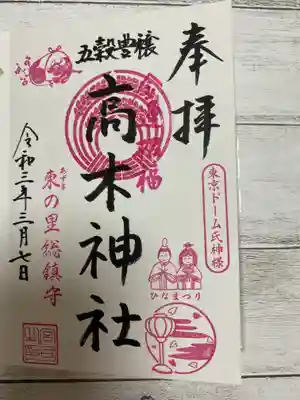 奉拝
東京ドーム氏神様
五穀豊穣
金運招福
高木神社
ひなまつり
あずま
東の里総鎮守
令和三年三月七日